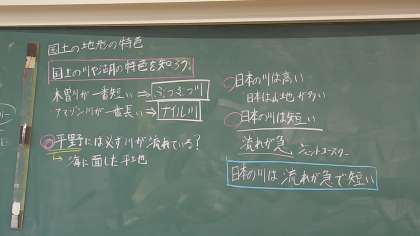 国土の地形の特色
国土の川や湖の特色を知ろう。
木曽川が一番短い → ぶつぶつ川
アマゾン川が一番長い → ナイル川
平野には必ず川が流れている?
→ 海に面した平地
日本の川は高い
日本は山地が多い
日本の川は短い
流れが急 ジェットコースター
日本の川は流れが急で短い